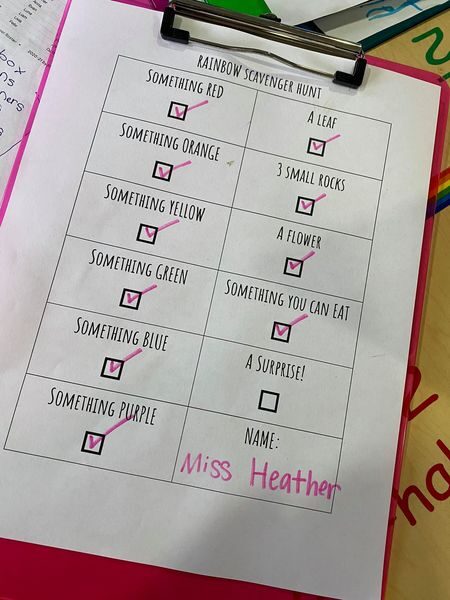 RAINBOW SCAVENGER HUNT
SOMETHING RED
A LEAF
SOMETHING ORANGE
3 SMALL ROCKS
SOMETHING YELLOW
A FLOWER
SOMETHING GREEN
SOMETHING YOU CAN EAT
SOMETHING BLUE
A SURPRISE!
SOMETHING PURPLE
NAME:
Miss Heather